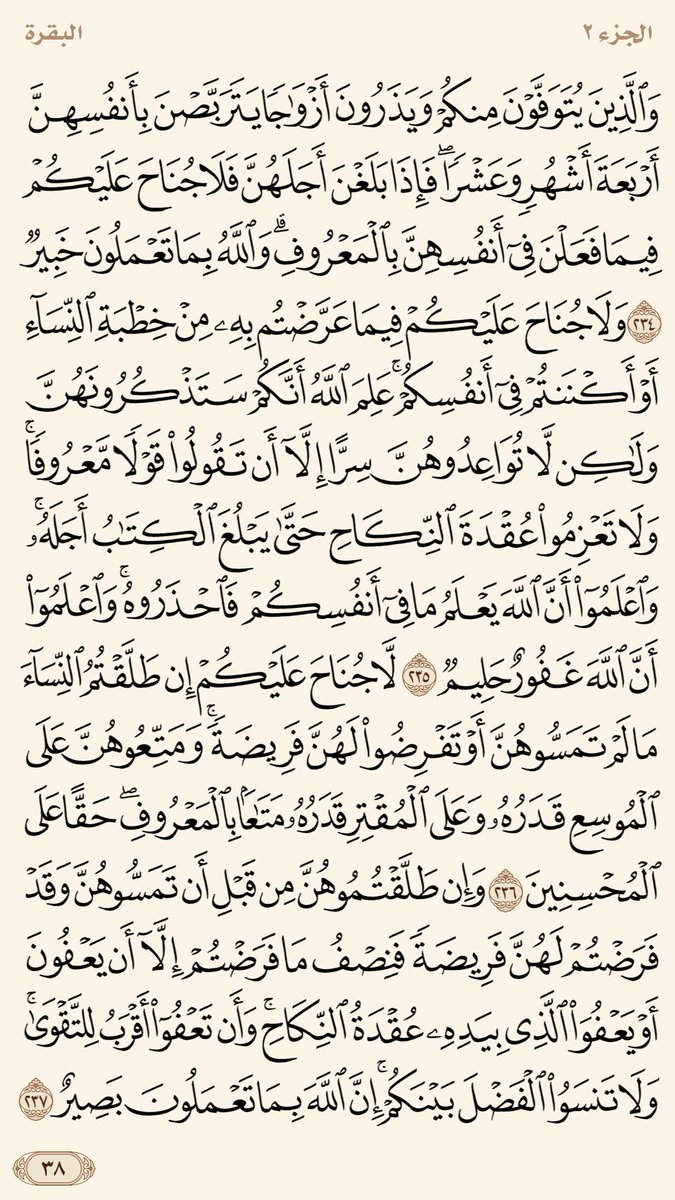 الجزء ٢
البقرة
وَٱلَّذِينَ يُتَوَفَّوْنَ مِنكُمْ وَيَذَرُونَ أَزْوَٰجًا يَتَرَبَّصْنَ بِأَنفُسِهِنَّ
أَرْبَعَةَ أَشْهُرٍ وَعَشْرًا ۖ فَإِذَا بَلَغْنَ أَجَلَهُنَّ فَلَا جُنَاحَ عَلَيْكُمْ
فِيمَا فَعَلْنَ فِىٓ أَنفُسِهِنَّ بِٱلْمَعْرُوفِ ۗ وَٱللَّهُ بِمَا تَعْمَلُونَ خَبِيرٌ
٢٣٤ وَلَا جُنَاحَ عَلَيْكُمْ فِيمَا عَرَّضْتُم بِهِۦ مِنْ خِطْبَةِ ٱلنِّسَآءِ
أَوْ أَكْنَنتُمْ فِىٓ أَنفُسِكُمْ ۚ عَلِمَ ٱللَّهُ أَنَّكُمْ سَتَذْكُرُونَهُنَّ
وَلَٰكِن لَّا تُوَاعِدُوهُنَّ سِرًّا إِلَّآ أَن تَقُولُوا۟ قَوْلًا مَّعْرُوفًا ۚ
وَلَا تَعْزِمُوا۟ عُقْدَةَ ٱلنِّكَاحِ حَتَّىٰ يَبْلُغَ ٱلْكِتَٰبُ أَجَلَهُۥ ۚ
وَٱعْلَمُوٓا۟ أَنَّ ٱللَّهَ يَعْلَمُ مَا فِىٓ أَنفُسِكُمْ فَٱحْذَرُوهُ ۚ وَٱعْلَمُوٓا۟
أَنَّ ٱللَّهَ غَفُورٌ حَلِيمٌ ٢٣٥ لَّا جُنَاحَ عَلَيْكُمْ إِن طَلَّقْتُمُ ٱلنِّسَآءَ
مَا لَمْ تَمَسُّوهُنَّ أَوْ تَفْرِضُوا۟ لَهُنَّ فَرِيضَةً ۚ وَمَتِّعُوهُنَّ عَلَى
ٱلْمُوسِعِ قَدَرُهُۥ وَعَلَى ٱلْمُقْتِرِ قَدَرُهُۥ مَتَٰعًۢا بِٱلْمَعْرُوفِ ۖ حَقًّا عَلَى
ٱلْمُحْسِنِينَ ٢٣٦ وَإِن طَلَّقْتُمُوهُنَّ مِن قَبْلِ أَن تَمَسُّوهُنَّ وَقَدْ
فَرَضْتُمْ لَهُنَّ فَرِيضَةً فَنِصْفُ مَا فَرَضْتُمْ إِلَّآ أَن يَعْفُونَ
أَوْ يَعْفُوَا۟ ٱلَّذِى بِيَدِهِۦ عُقْدَةُ ٱلنِّكَاحِ ۚ وَأَن تَعْفُوٓا۟ أَقْرَبُ لِلتَّقْوَىٰ ۚ
وَلَا تَنسَوُا۟ ٱلْفَضْلَ بَيْنَكُمْ ۚ إِنَّ ٱللَّهَ بِمَا تَعْمَلُونَ بَصِيرٌ ٢٣٧
٣٨